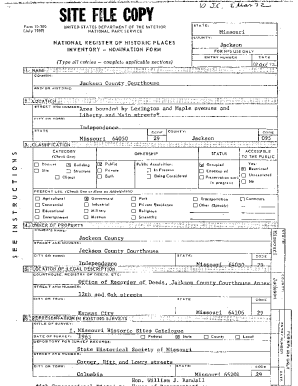 SITE FILE COPY
Form 10-300
(July 1969)
UNITED STATES DEPARTMENT OF THE INTERIOR
NATIONAL PARK SERVICE
NATIONAL REGISTER OF HISTORIC PLACES
INVENTORY - NOMINATION FORM
(Type all entries - complete applicable sections)
STATE:
Missouri
COUNTY:
Jackson
FOR NPS USE ONLY
ENTRY NUMBER
DATE
1. NAME
COMMON:
Jackson County Courthouse
AND/OR HISTORIC:
2. LOCATION
STREET AND NUMBER:
Area bounded by Lexington and Maple avenues and
Liberty and Main streets
CITY OR TOWN:
Independence
STATE
CODE
COUNTY:
CODE
Missouri 64050
29
Jackson
095
3. CLASSIFICATION
CATEGORY
(Check One)
OWNERSHIP
STATUS
ACCESSIBLE
TO THE PUBLIC
District
Building
Site
Structure
Object
Public
Private
Both
Public Acquisition:
In Process
Being Considered
Occupied
Unoccupied
Preservation work
in progress
Yes:
Restricted
Unrestricted
No
PRESENT USE (Check One or More as Appropriate)
Agricultural
Government
Park
Transportation
Comments
Commercial
Industrial
Private Residence
Other (Specify)
Educational
Military
Religious
Entertainment
Museum
Scientific
SEE INSTRUCTIONS
4. OWNER OF PROPERTY
Jackson County
STREET AND NUMBER:
Jackson County Courthouse
CITY OR TOWN:
STATE:
CODE
Independence
Missouri 64050
29
5. LOCATION OF LEGAL DESCRIPTION
COURTHOUSE, REGISTRY OF DEEDS, ETC:
Office of Recorder of Deeds, Jackson County Courthouse Annex
STREET AND NUMBER:
12th and Oak streets
CITY OR TOWN:
STATE
CODE
Kansas City
Missouri 64106
29
6. REPRESENTATION IN EXISTING SURVEYS
TITLE OF SURVEY:
Missouri Historic Sites Catalogue
DATE OF SURVEY: 1963
Federal
State
County
Local
DEPOSITORY FOR SURVEY RECORDS:
State Historical Society of Missouri
STREET AND NUMBER:
Corner, Hitt and Lowry streets
CITY OR TOWN:
STATE:
CODE
Columbia
Missouri 65201
29
Hon. William J. Randall